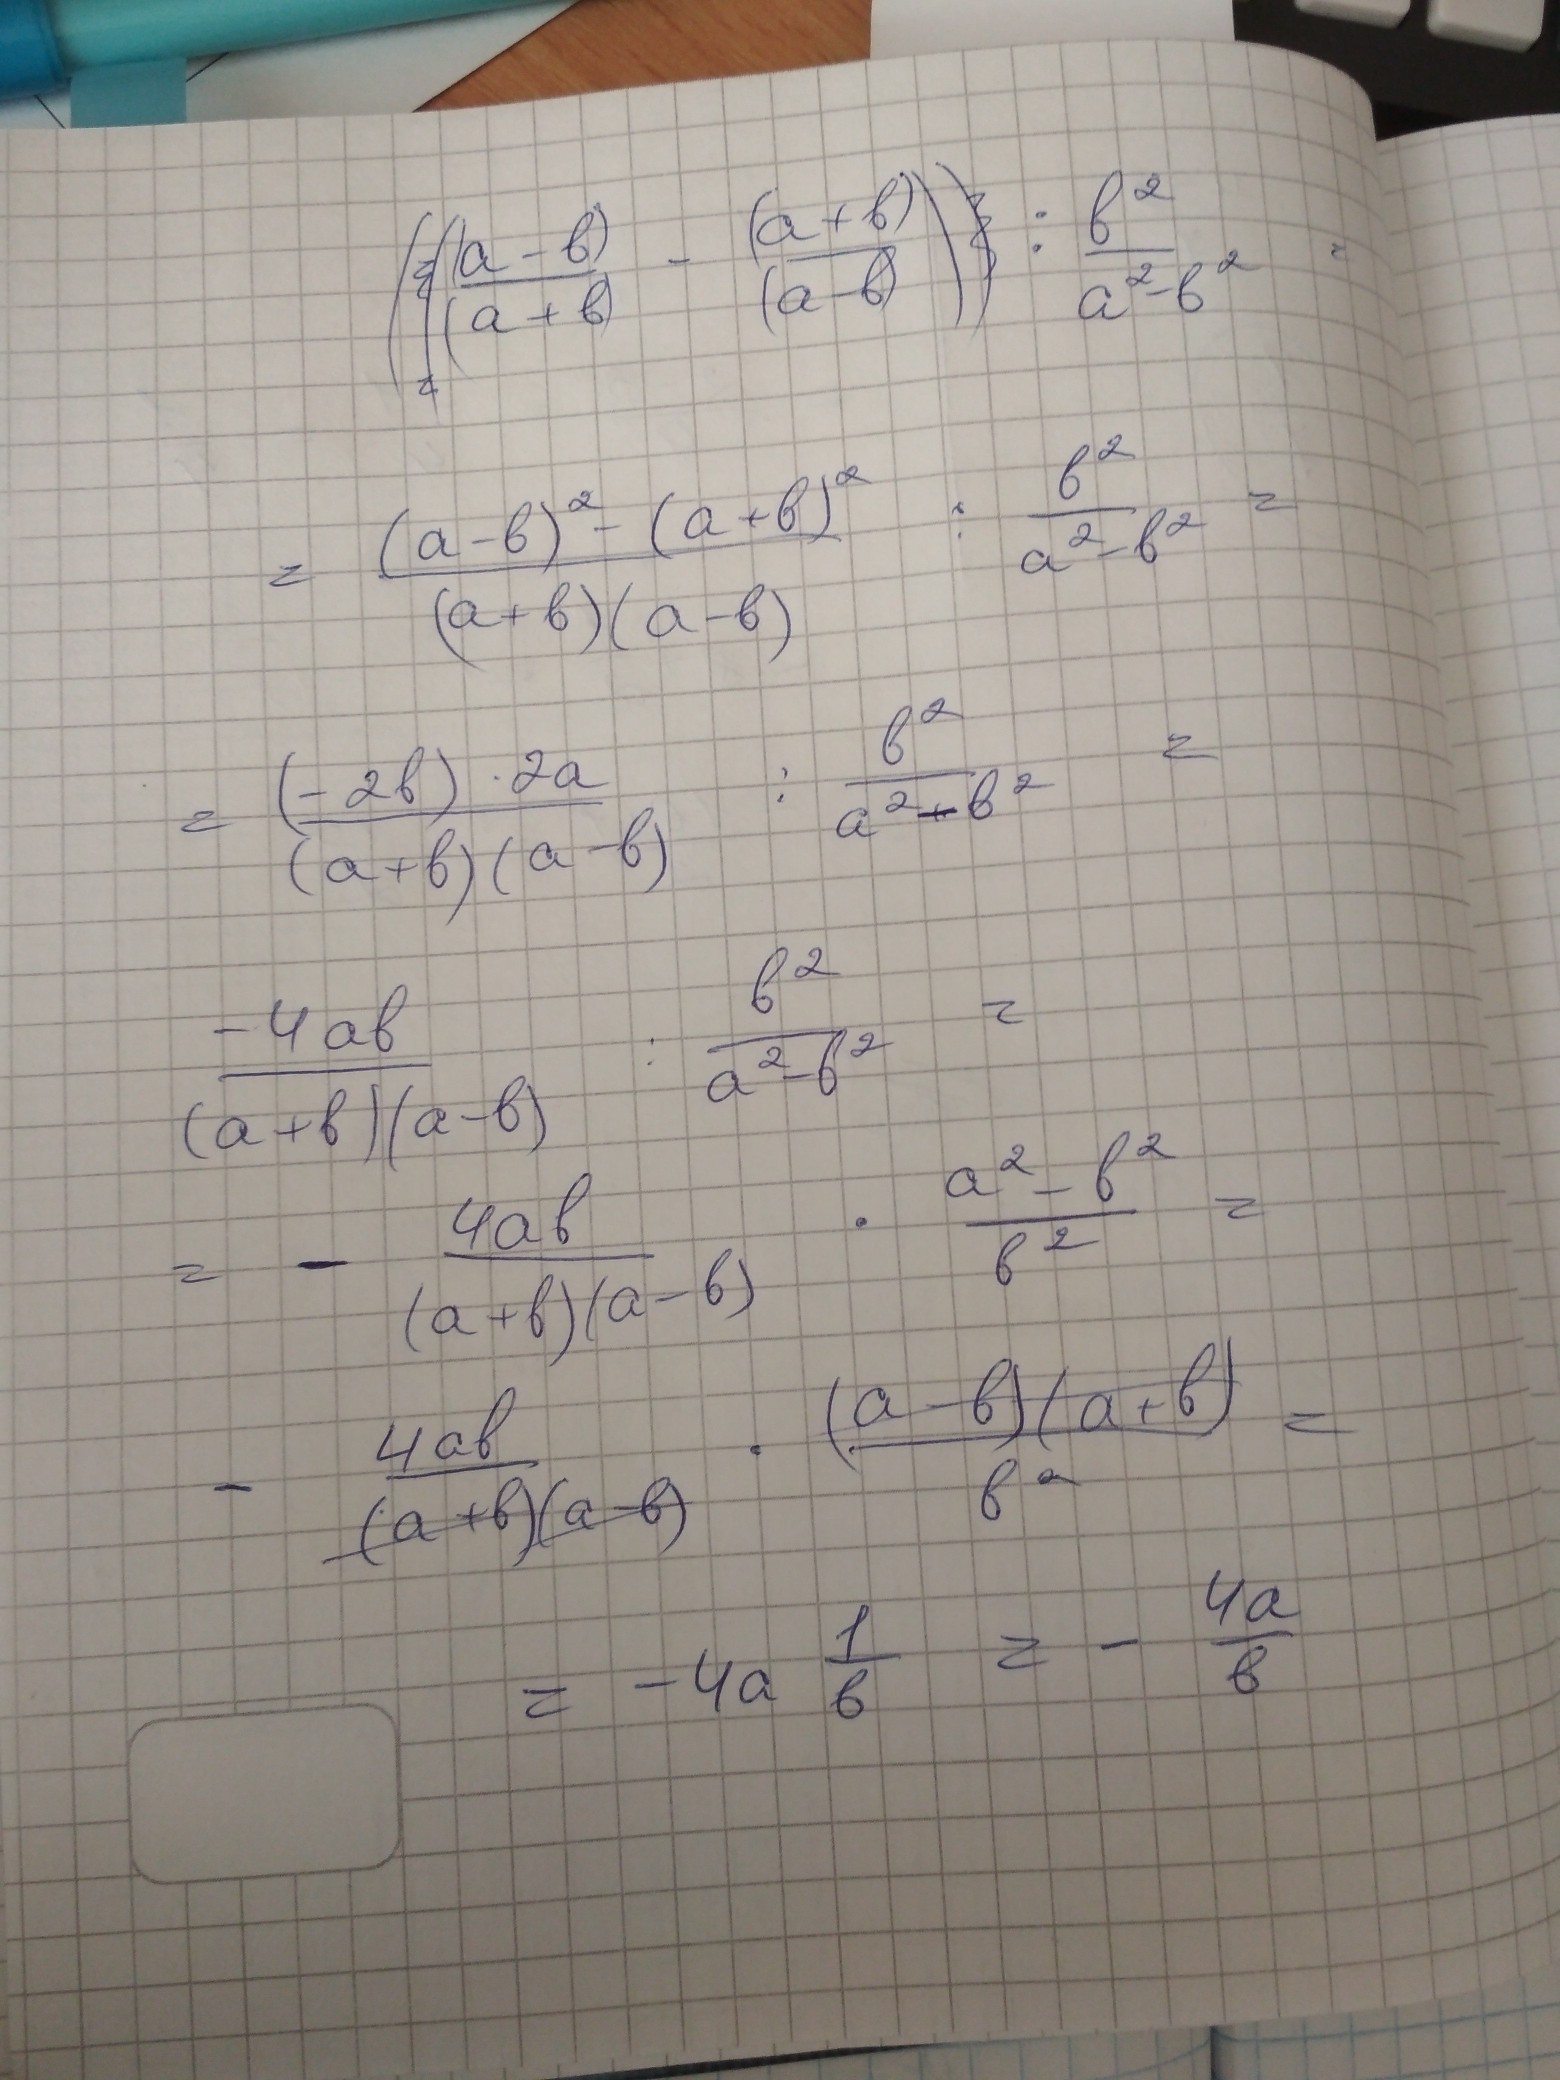 ((a-b)/(a+b) - (a+b)/(a-b)) : b²/(a²-b²) =
= ((a-b)² - (a+b)²)/((a+b)(a-b)) : b²/(a²-b²) =
= ((-2b)·2a)/((a+b)(a-b)) : b²/(a²-b²) =
(-4ab)/((a+b)(a-b)) : b²/(a²-b²) =
= - 4ab/((a+b)(a-b)) · (a²-b²)/b² =
- 4ab/((a+b)(a-b)) · ((a-b)(a+b))/b² =
= -4a 1/b = - 4a/b